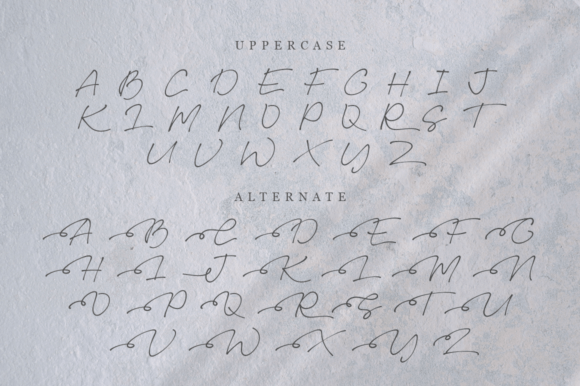 UPPERCASE
A B C D E F G H I J
K L M N O P Q R S T
U V W X Y Z
ALTERNATE
A B C D E F G
H I J K L M N
O P Q R S T U
V W X Y Z